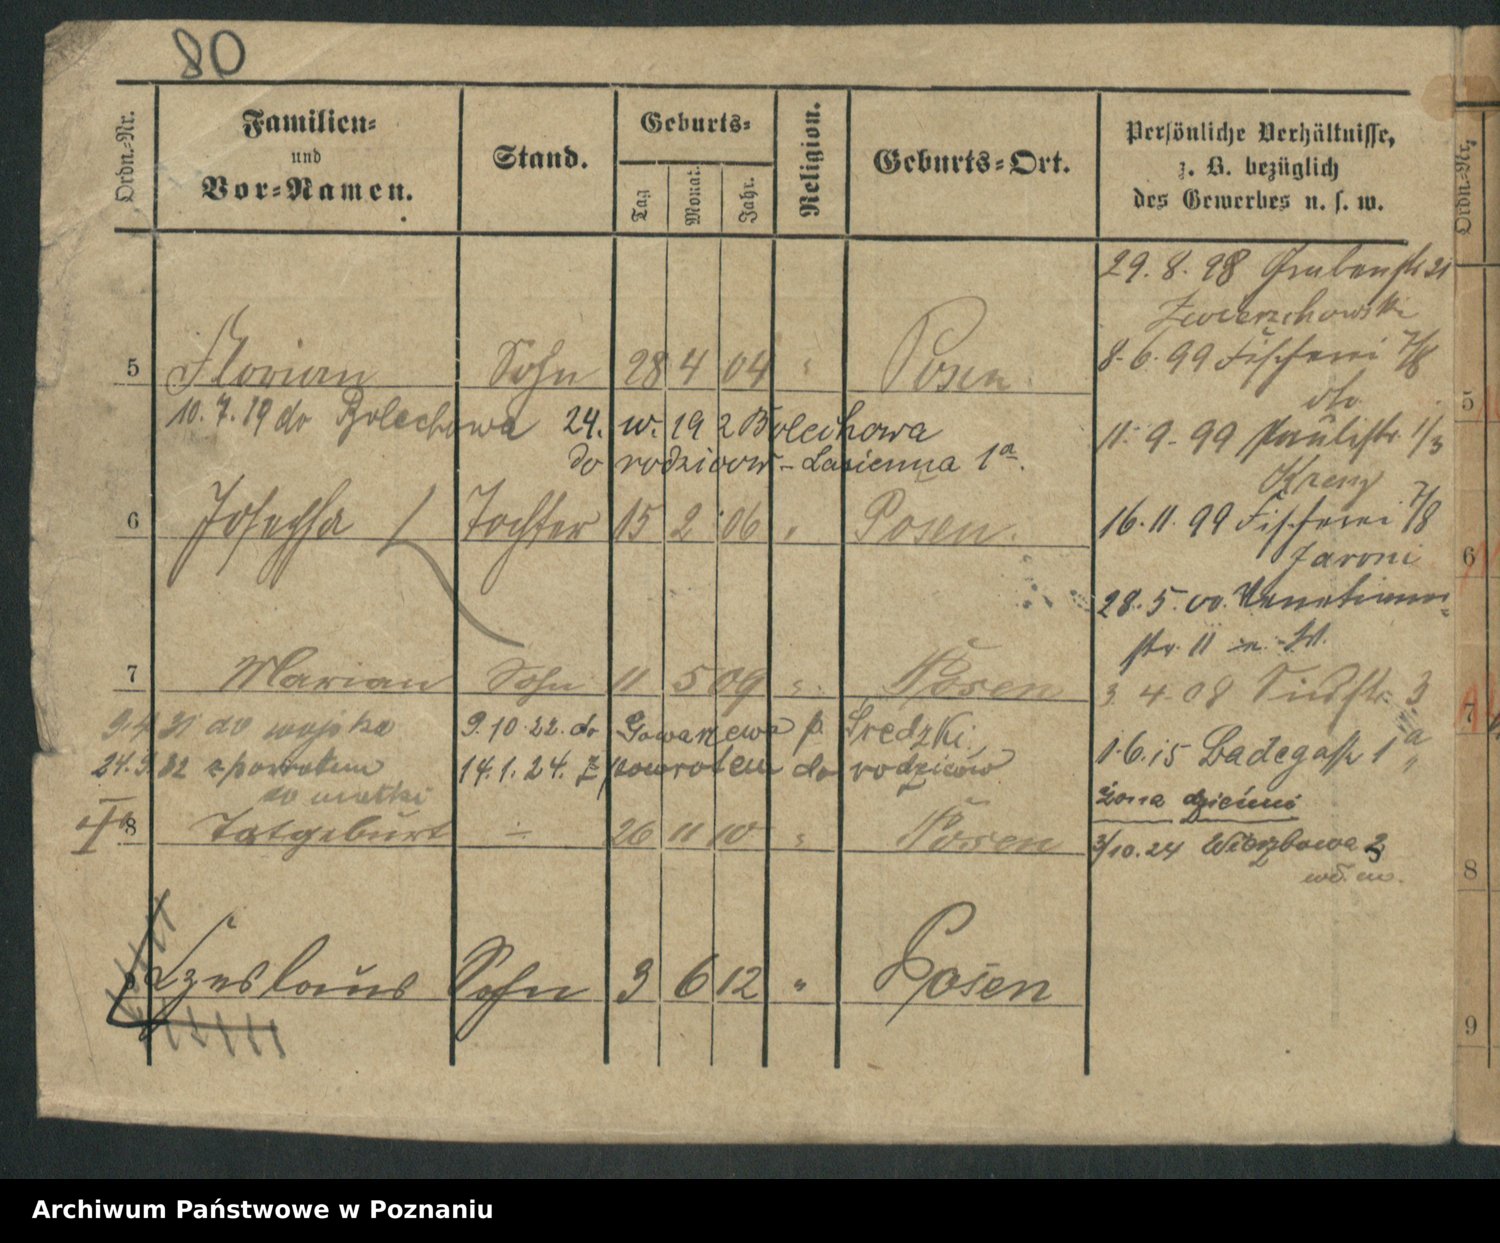 80
Ordn.-Nr.
Familien-
und
Vor-Namen.
Stand.
Geburts-
Tag
Monat.
Jahr.
Religion.
Geburts-Ort.
Persönliche Verhältnisse,
z. B. bezüglich
des Gewerbes u. s. w.
Ordn.-Nr.
29. 8. 98 Grabenstr 21
Zwierzchowski
5 Florian Sohn 28 4 04 " Posen
8. 6. 99 Fischerei 7/8
10. 7. 19 do Bolechowa 24. w. 19 z Bolechowa
do rodzicow - Lazienna 1a.
11. 9. 99 Paulistr. 1/3
Krenz
6 Josepha Tochter 15 2 06 " Posen.
16. 11. 99 Fischerei 7/8
Jaroni
28. 5. 00. Venetianer-
str. 11
7 Marian Sohn 11 5 09 " Posen
3 4. 08 Südstr. 3
9.4 31 do wojska 9. 10. 22. do Gowarzewa p. Średzki,
1. 6. 15 Badegasse 1a
24.3.32 z powrotem 14. 1. 24. z powrotem do rodziców
do matki
żona dziećmi
8 Totgeburt - 26 11 10 " Posen
3/10. 24 Wierzbowa 2
9 Czeslaus Sohn 3 6 12 " Posen
5
6
7
8
9
Archiwum Państwowe w Poznaniu